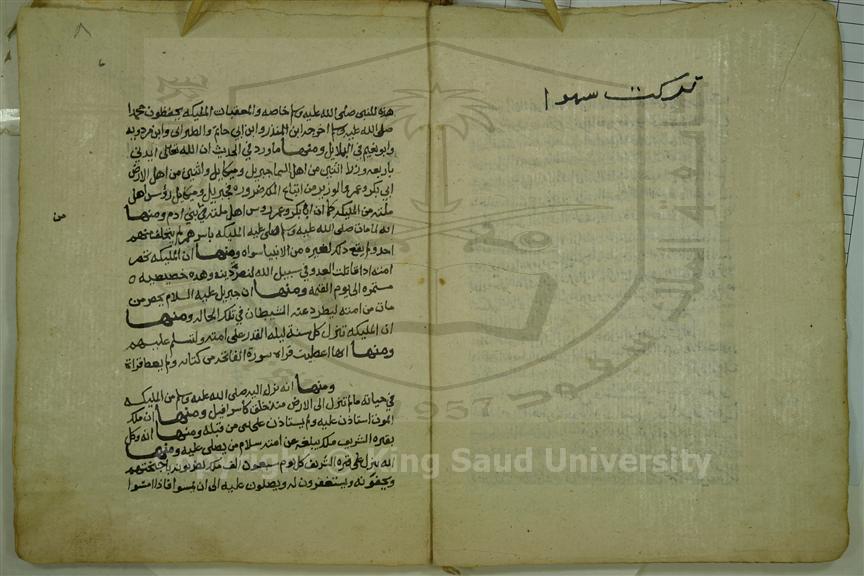 تركت سهوا
هذه للنبي صلى الله عليه وسلم خاصه والمعقبات المليكه يحفظون محمدا
صلى الله عليه وسلم اخرجه ابن المنذر وابن ابي حاتم والطبراني وابن مردويه
وابو نعيم في الدلايل ومنها ما ورد في الحديث ان الله تعالى ايدني
باربعه وزرا اثنين من اهل السما جبريل وميكايل واثنين من اهل الارض
ابي بكر وعمر والوزير من اتباع الملك ضروره فجبريل وميكايل رؤس اهل
ملته من المليكه كما ان ابا بكر وعمر روس اهل ملته في بني ادم ومنها
من
انه لما مات صلى الله عليه وسلم صلى عليه المليكه باسرهم لم يتخلف منهم
احد ولم يقع ذلك لغيره من الانبيا سواه ومنها ان المليكه تحضر
امته اذا قاتلت العدو في سبيل الله لنصرة دينه وهذه خصيصيه
مستمره الى يوم القيمه ومنها ان جبريل عليه السلام يحضر من
مات من امته ليطرد عنه الشيطان في تلك الحاله ومنها
ان المليكه تنزل كل سنة ليله القدر على امته وتسلم عليهم
ومنها انها اعطيت قراة سورة الفاتحه من كتابه ولم يعط قراة
ومنها انه نزل اليه صلى الله عليه وسلم من المليكه
في حياته ما لم تنزل الى الارض منذ خلق كاسرافيل ومنها ان ملك
الموت استاذن عليه ولم يستاذن على نبي من قبله ومنها انه وكل
بقبره الشريف ملك يبلغه عن امته سلام من يصلى عليه ومنها
انه ينزل على قبره الشريف كل يوم سبعون الف ملك يضربونه باجنحتهم
ويحفونه ويستغفرون له ويصلون عليه الى ان يمسوا فاذا امسوا
1957
Copyright © King Saud University